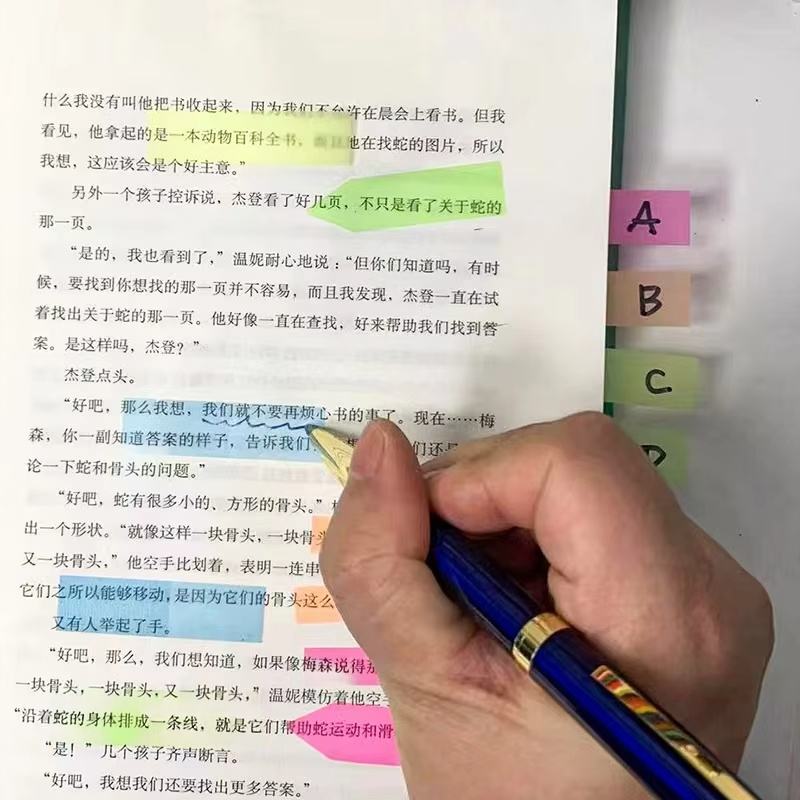 什么我没有叫他把书收起来，因为我们不允许在晨会上看书。但我
看见，他拿起的是一本动物百科全书，而且他在找蛇的图片，所以
我想，这应该会是个好主意。”
另外一个孩子控诉说，杰登看了好几页，不只是看了关于蛇的
那一页。
“是的，我也看到了，”温妮耐心地说：“但你们知道吗，有时
候，要找到你想找的那一页并不容易，而且我发现，杰登一直在试
着找出关于蛇的那一页。他好像一直在查找，好来帮助我们找到答
案。是这样吗，杰登？”
杰登点头。
“好吧，那么我想，我们就不要再烦心书的事了。现在……梅
森，你一副知道答案的样子，告诉我们
们还是
论一下蛇和骨头的问题。”
“好吧，蛇有很多小的、方形的骨头。”
出一个形状。“就像这样一块骨头，一块骨头
又一块骨头，”他空手比划着，表明一连串
它们之所以能够移动，是因为它们的骨头这么
又有人举起了手。
“好吧，那么，我们想知道，如果像梅森说得那
一块骨头，一块骨头，又一块骨头，”温妮模仿着他空手
“沿着蛇的身体排成一条线，就是它们帮助蛇运动和滑
“是！”几个孩子齐声断言。
“好吧，我想我们还要找出更多答案。”
A
B
C
D